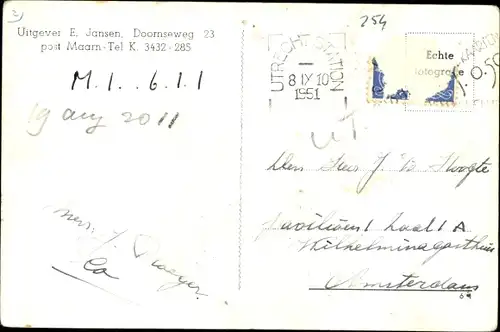 3)
254
Uitgever E. Jansen, Doornseweg 23
post Maarn - Tel K. 3432-285
M.I. 6.11
19 aug 2011
UTRECHT STATION
8 IX 10
1951
Echte
fotografie
Den Heer J. B. Hoogte
paviljoen 1 zaal 1 A
Wilhelminagasthuis
Amsterdam
64